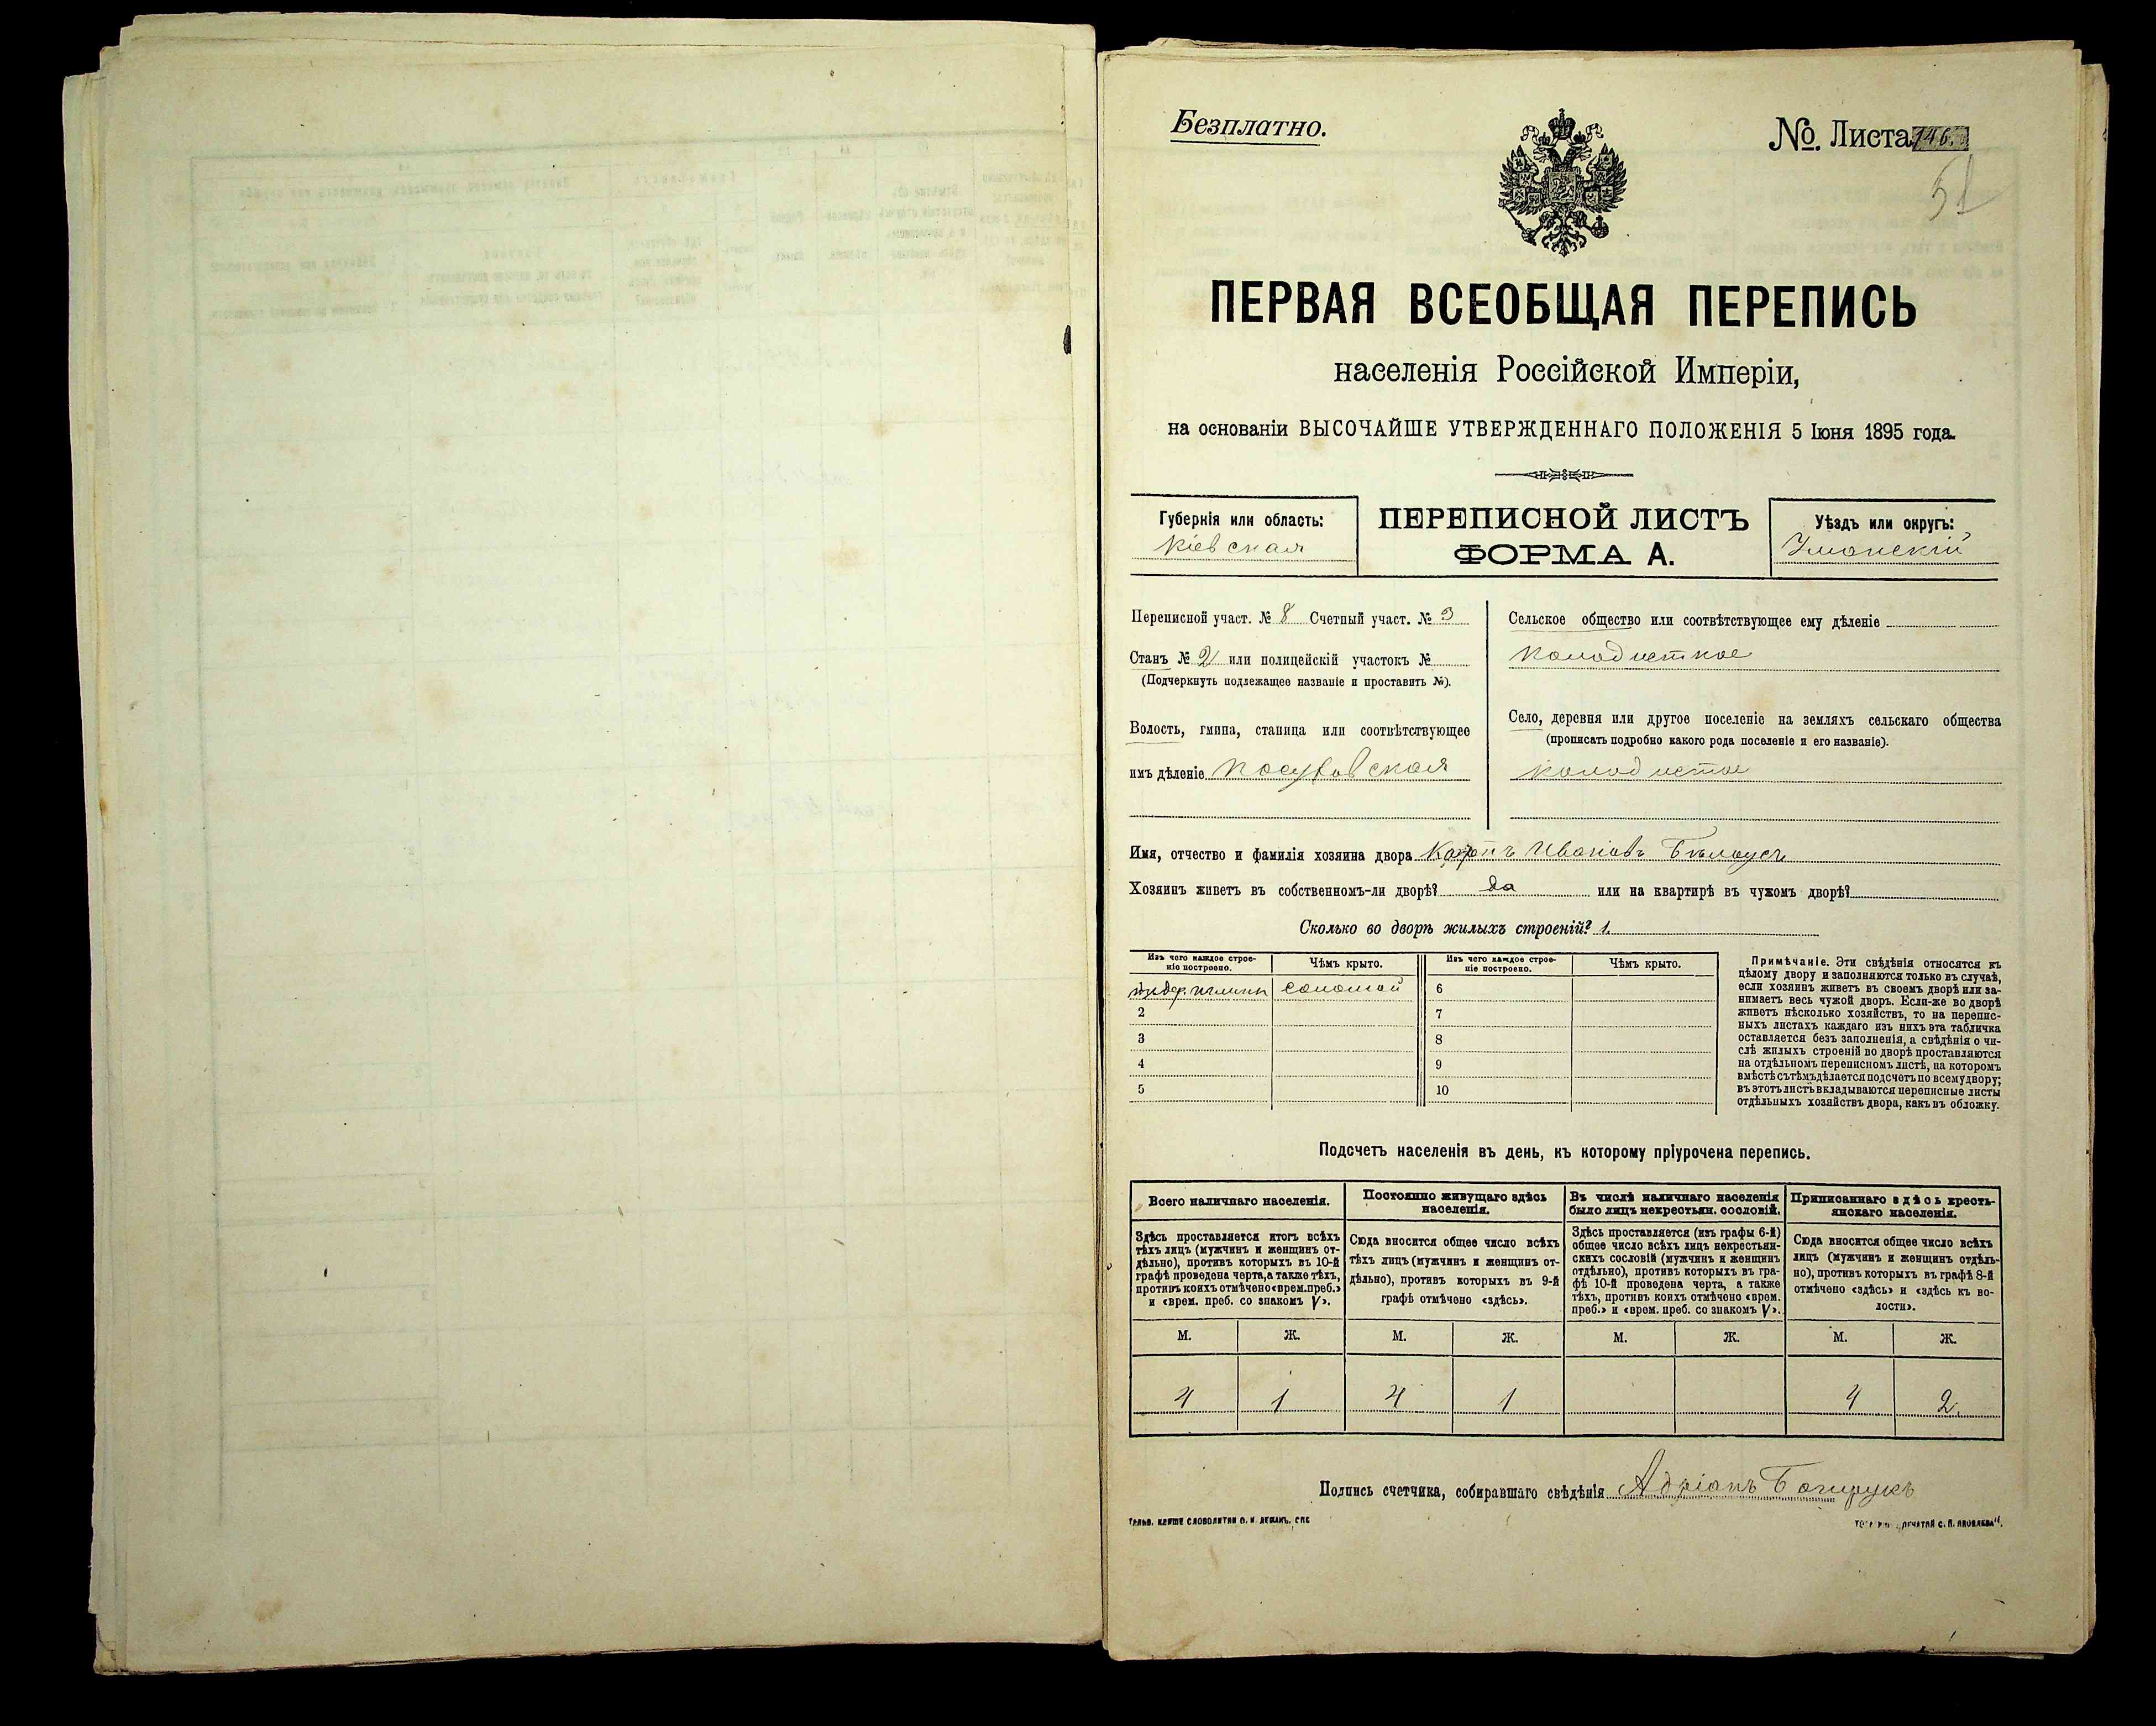 Безплатно.
№. Листа 146.
51
ПЕРВАЯ ВСЕОБЩАЯ ПЕРЕПИСЬ
населенія Россійской Имперіи,
на основаніи ВЫСОЧАЙШЕ УТВЕРЖДЕННАГО ПОЛОЖЕНІЯ 5 Іюня 1895 года.
Губернія или область:
Кіевская
ПЕРЕПИСНОЙ ЛИСТЪ
ФОРМА А.
Уѣздъ или округъ:
Уманскій
Переписной участ. № 8 Счетный участ. № 3
Станъ № 2 или полицейскій участокъ №
(Подчеркнуть подлежащее названіе и проставить №).
Волость, гмина, станица или соотвѣтствующее
имъ дѣленіе
Сельское общество или соотвѣтствующее ему дѣленіе
Колодисткое
Село, деревня или другое поселеніе на земляхъ сельскаго общества
(прописать подробно какого рода поселеніе и его названіе).
Колодистое
Имя, отчество и фамилія хозяина двора Ивановъ Бѣлоусъ
Хозяинъ живетъ въ собственномъ-ли дворѣ? да или на квартирѣ въ чужомъ дворѣ?
Сколько во дворѣ жилыхъ строеній? 1.
Изъ чего каждое строе-
ніе построено.
Чѣмъ крыто.
Изъ чего каждое строе-
ніе построено.
Чѣмъ крыто.
глины соломой 6
2 7
3 8
4 9
5 10
Примѣчаніе. Эти свѣдѣнія относятся къ
цѣлому двору и заполняются только въ случаѣ,
если хозяинъ живетъ въ своемъ дворѣ или за-
нимаетъ весь чужой дворъ. Если-же во дворѣ
живетъ нѣсколько хозяйствъ, то на перепис-
ныхъ листахъ каждаго изъ нихъ эта табличка
оставляется безъ заполненія, а свѣдѣнія о чи-
слѣ жилыхъ строеній во дворѣ проставляются
на отдѣльномъ переписномъ листѣ, на которомъ
вмѣстѣ съ тѣмъ дѣлается подсчетъ по всему двору;
въ этотъ листъ вкладываются переписные листы
отдѣльныхъ хозяйствъ двора, какъ въ обложку.
Подсчетъ населенія въ день, къ которому пріурочена перепись.
Всего наличнаго населенія.
Здѣсь проставляется итогъ всѣхъ
тѣхъ лицъ (мужчинъ и женщинъ от-
дѣльно), противъ которыхъ въ 10-й
графѣ проведена черта, а также тѣхъ,
противъ коихъ отмѣчено «врем. преб.»
и «врем. преб. со знакомъ V».
Постоянно живущаго здѣсь
населенія.
Сюда вносится общее число всѣхъ
тѣхъ лицъ (мужчинъ и женщинъ от-
дѣльно), противъ которыхъ въ 9-й
графѣ отмѣчено «здѣсь».
Въ числѣ наличнаго населенія
было лицъ некрестьян. сословій.
Здѣсь проставляется (изъ графы 6-й)
общее число всѣхъ лицъ некрестьян-
скихъ сословій (мужчинъ и женщинъ
отдѣльно), противъ которыхъ въ гра-
фѣ 10-й проведена черта, а также
тѣхъ, противъ коихъ отмѣчено «врем.
преб.» и «врем. преб. со знакомъ V».
Приписаннаго здѣсь кресть-
янскаго населенія.
Сюда вносится общее число всѣхъ
лицъ (мужчинъ и женщинъ отдѣль-
но), противъ которыхъ въ графѣ 8-й
отмѣчено «здѣсь» и «здѣсь къ во-
лости».
М. Ж. М. Ж. М. Ж. М. Ж.
4 1 4 1 4 2.
Подпись счетчика, собиравшаго свѣдѣнія Адріанъ